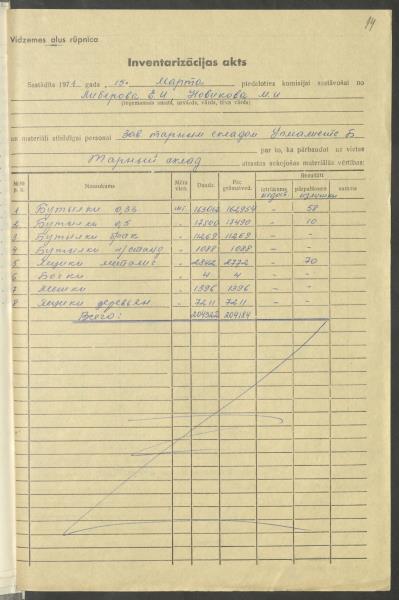 14
Vidzemes alus rūpnica
Inventarizācijas akts
Sastādīts 1971. gada 15. марта piedaloties komisijai sastāvošai no
Ливерова Е.И. Новикова М.И
(ieņemamais amats, uzvārds, vārds, tēva vārds)
un materiāli atbildīgai personai зав тарным складом
par to, ka pārbaudot uz vietas
Тарный склад atrastas sekojošas materiālās vērtības:
№№ p. k. Nosaukums Mēra vien. Daudz. Pēc grāmatved. Rezultāti
iztrūkums недост. pārpalikums излишки summa
1 Бутылки 0,33 шт. 163012 162954 - 58
2 Бутылки 0,5 " 17500 17490 - 10
3 Бутылки брак " 11269 11269 - -
4 Бутылки " 1088 1088 - -
5 Ящики металич " 2842 2772 - 70
6 Бочки " 4 4 - -
7 Мешки " 1396 1396 - -
8 Ящики деревян " 7211 7211 - -
Всего: 204322 204184